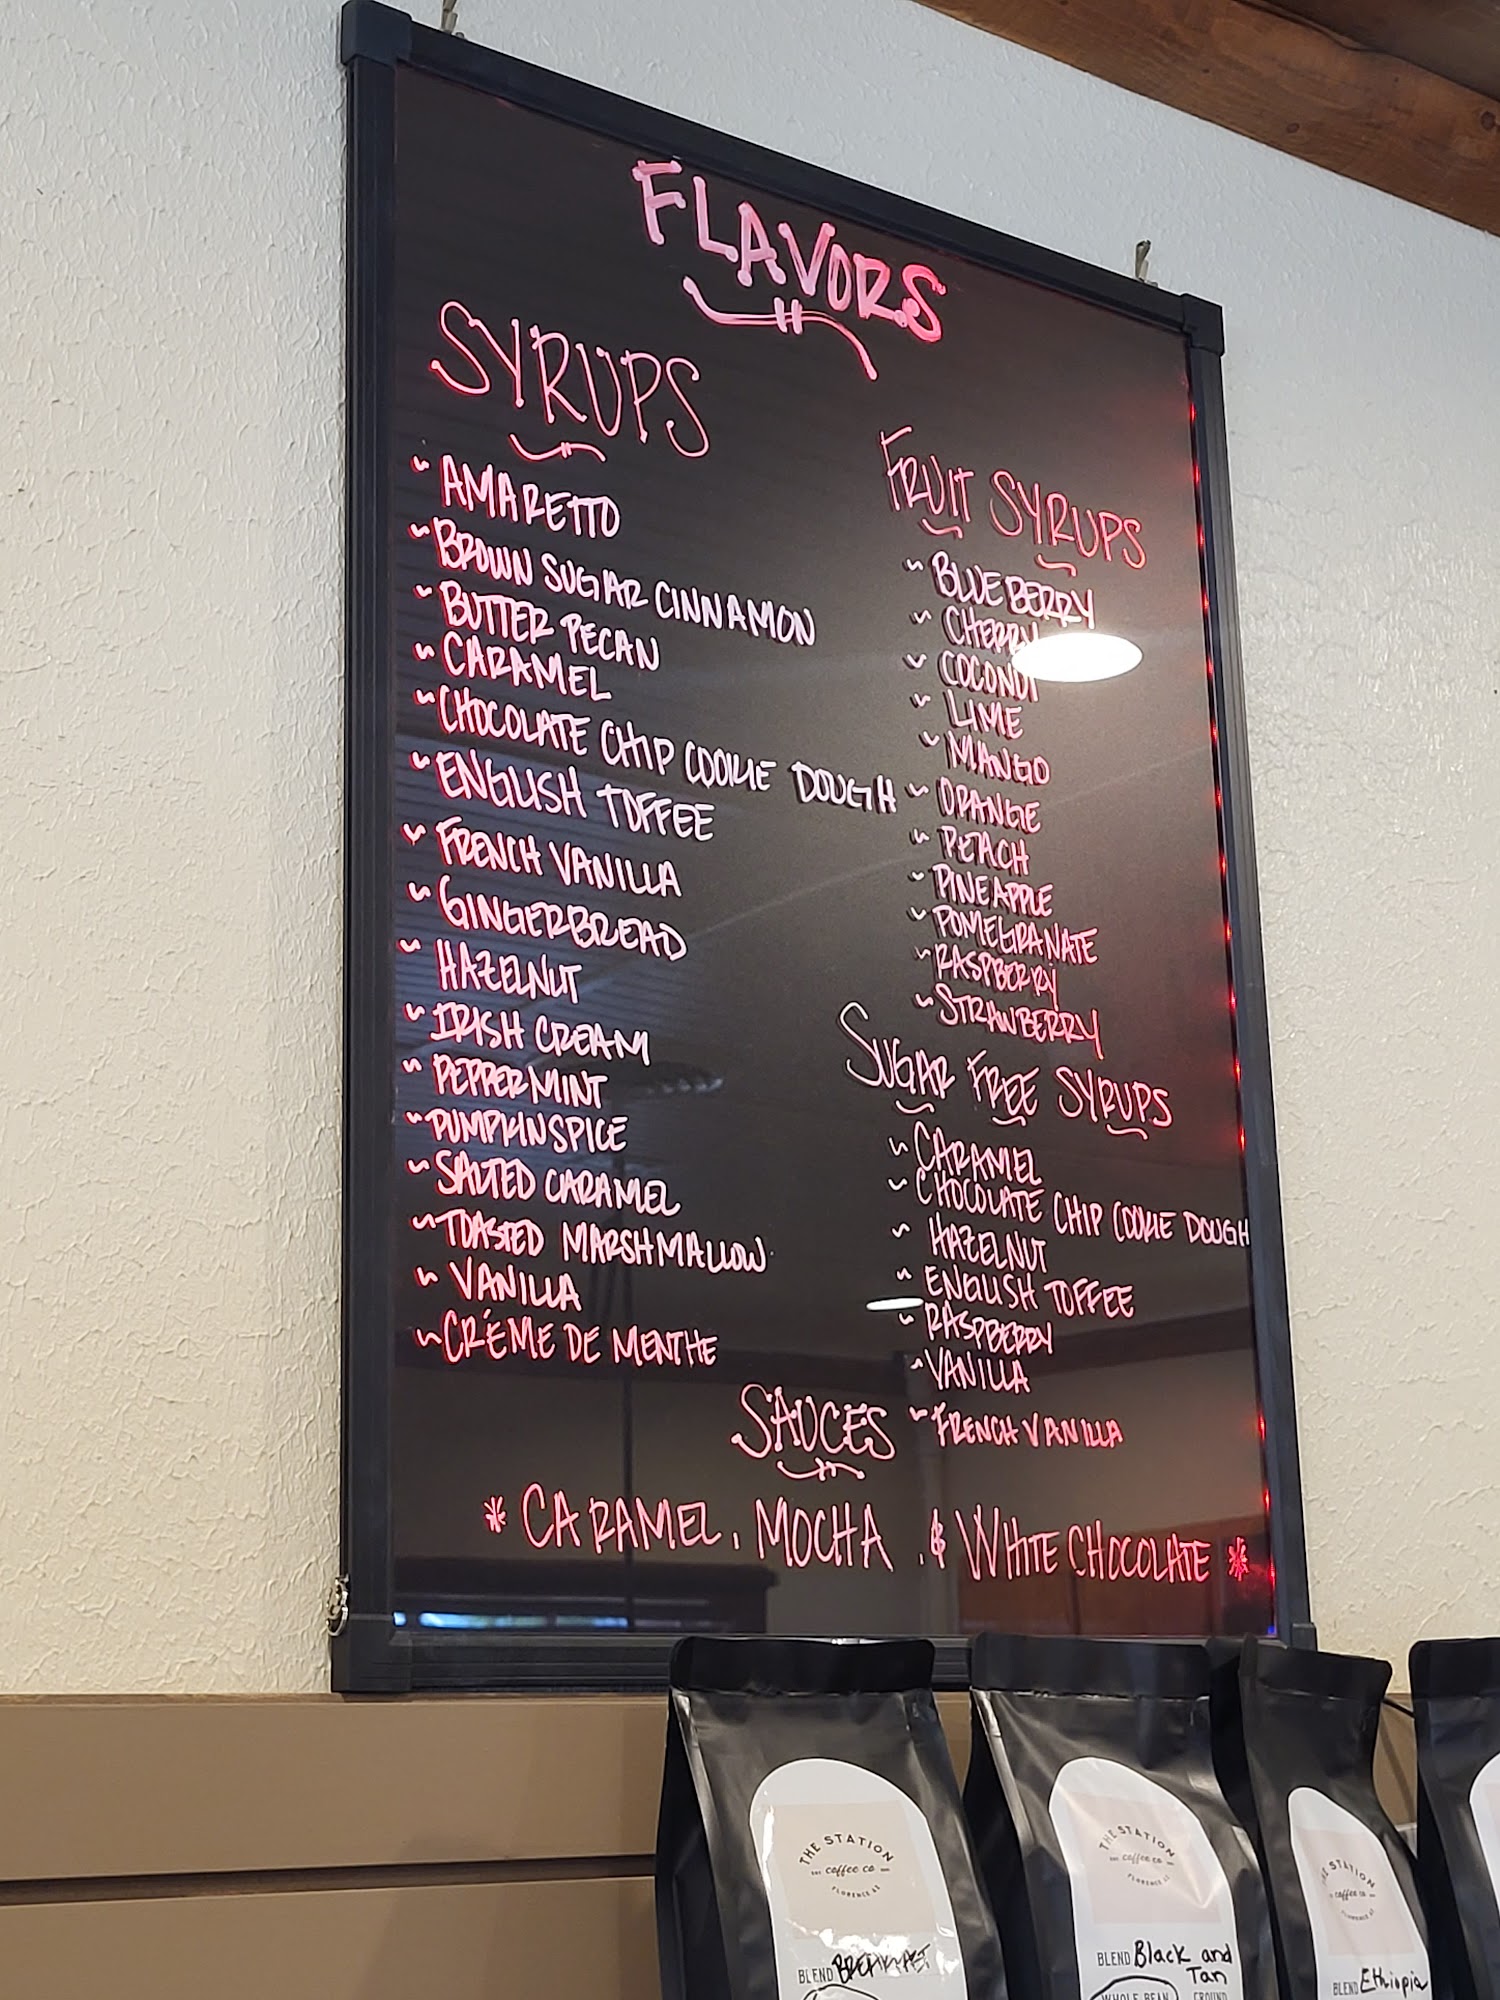 FLAVORS
SYRUPS
~ AMARETTO
~ BROWN SUGAR CINNAMON
~ BUTTER PECAN
~ CARAMEL
~ CHOCOLATE CHIP COOKIE DOUGH
~ ENGLISH TOFFEE
~ FRENCH VANILLA
~ GINGERBREAD
~ HAZELNUT
~ IRISH CREAM
~ PEPPERMINT
~ PUMPKIN SPICE
~ SALTED CARAMEL
~ TOASTED MARSHMALLOW
~ VANILLA
~ CRÉME DE MENTHE
FRUIT SYRUPS
~ BLUEBERRY
~ CHERRY
~ COCONUT
~ LIME
~ MANGO
~ ORANGE
~ PEACH
~ PINEAPPLE
~ POMEGRANATE
~ RASPBERRY
~ STRAWBERRY
SUGAR FREE SYRUPS
~ CARAMEL
~ CHOCOLATE CHIP COOKIE DOUGH
~ HAZELNUT
~ ENGLISH TOFFEE
~ RASPBERRY
~ VANILLA
~ FRENCH VANILLA
SAUCES
* CARAMEL, MOCHA, & WHITE CHOCOLATE *
THE STATION
coffee co
FLORENCE AZ
BLEND BREAKFAST
THE STATION
coffee co
FLORENCE AZ
BLEND Black and
Tan
WHOLE BEAN GROUND
THE STATION
coffee co
FLORENCE AZ
BLEND Ethiopia